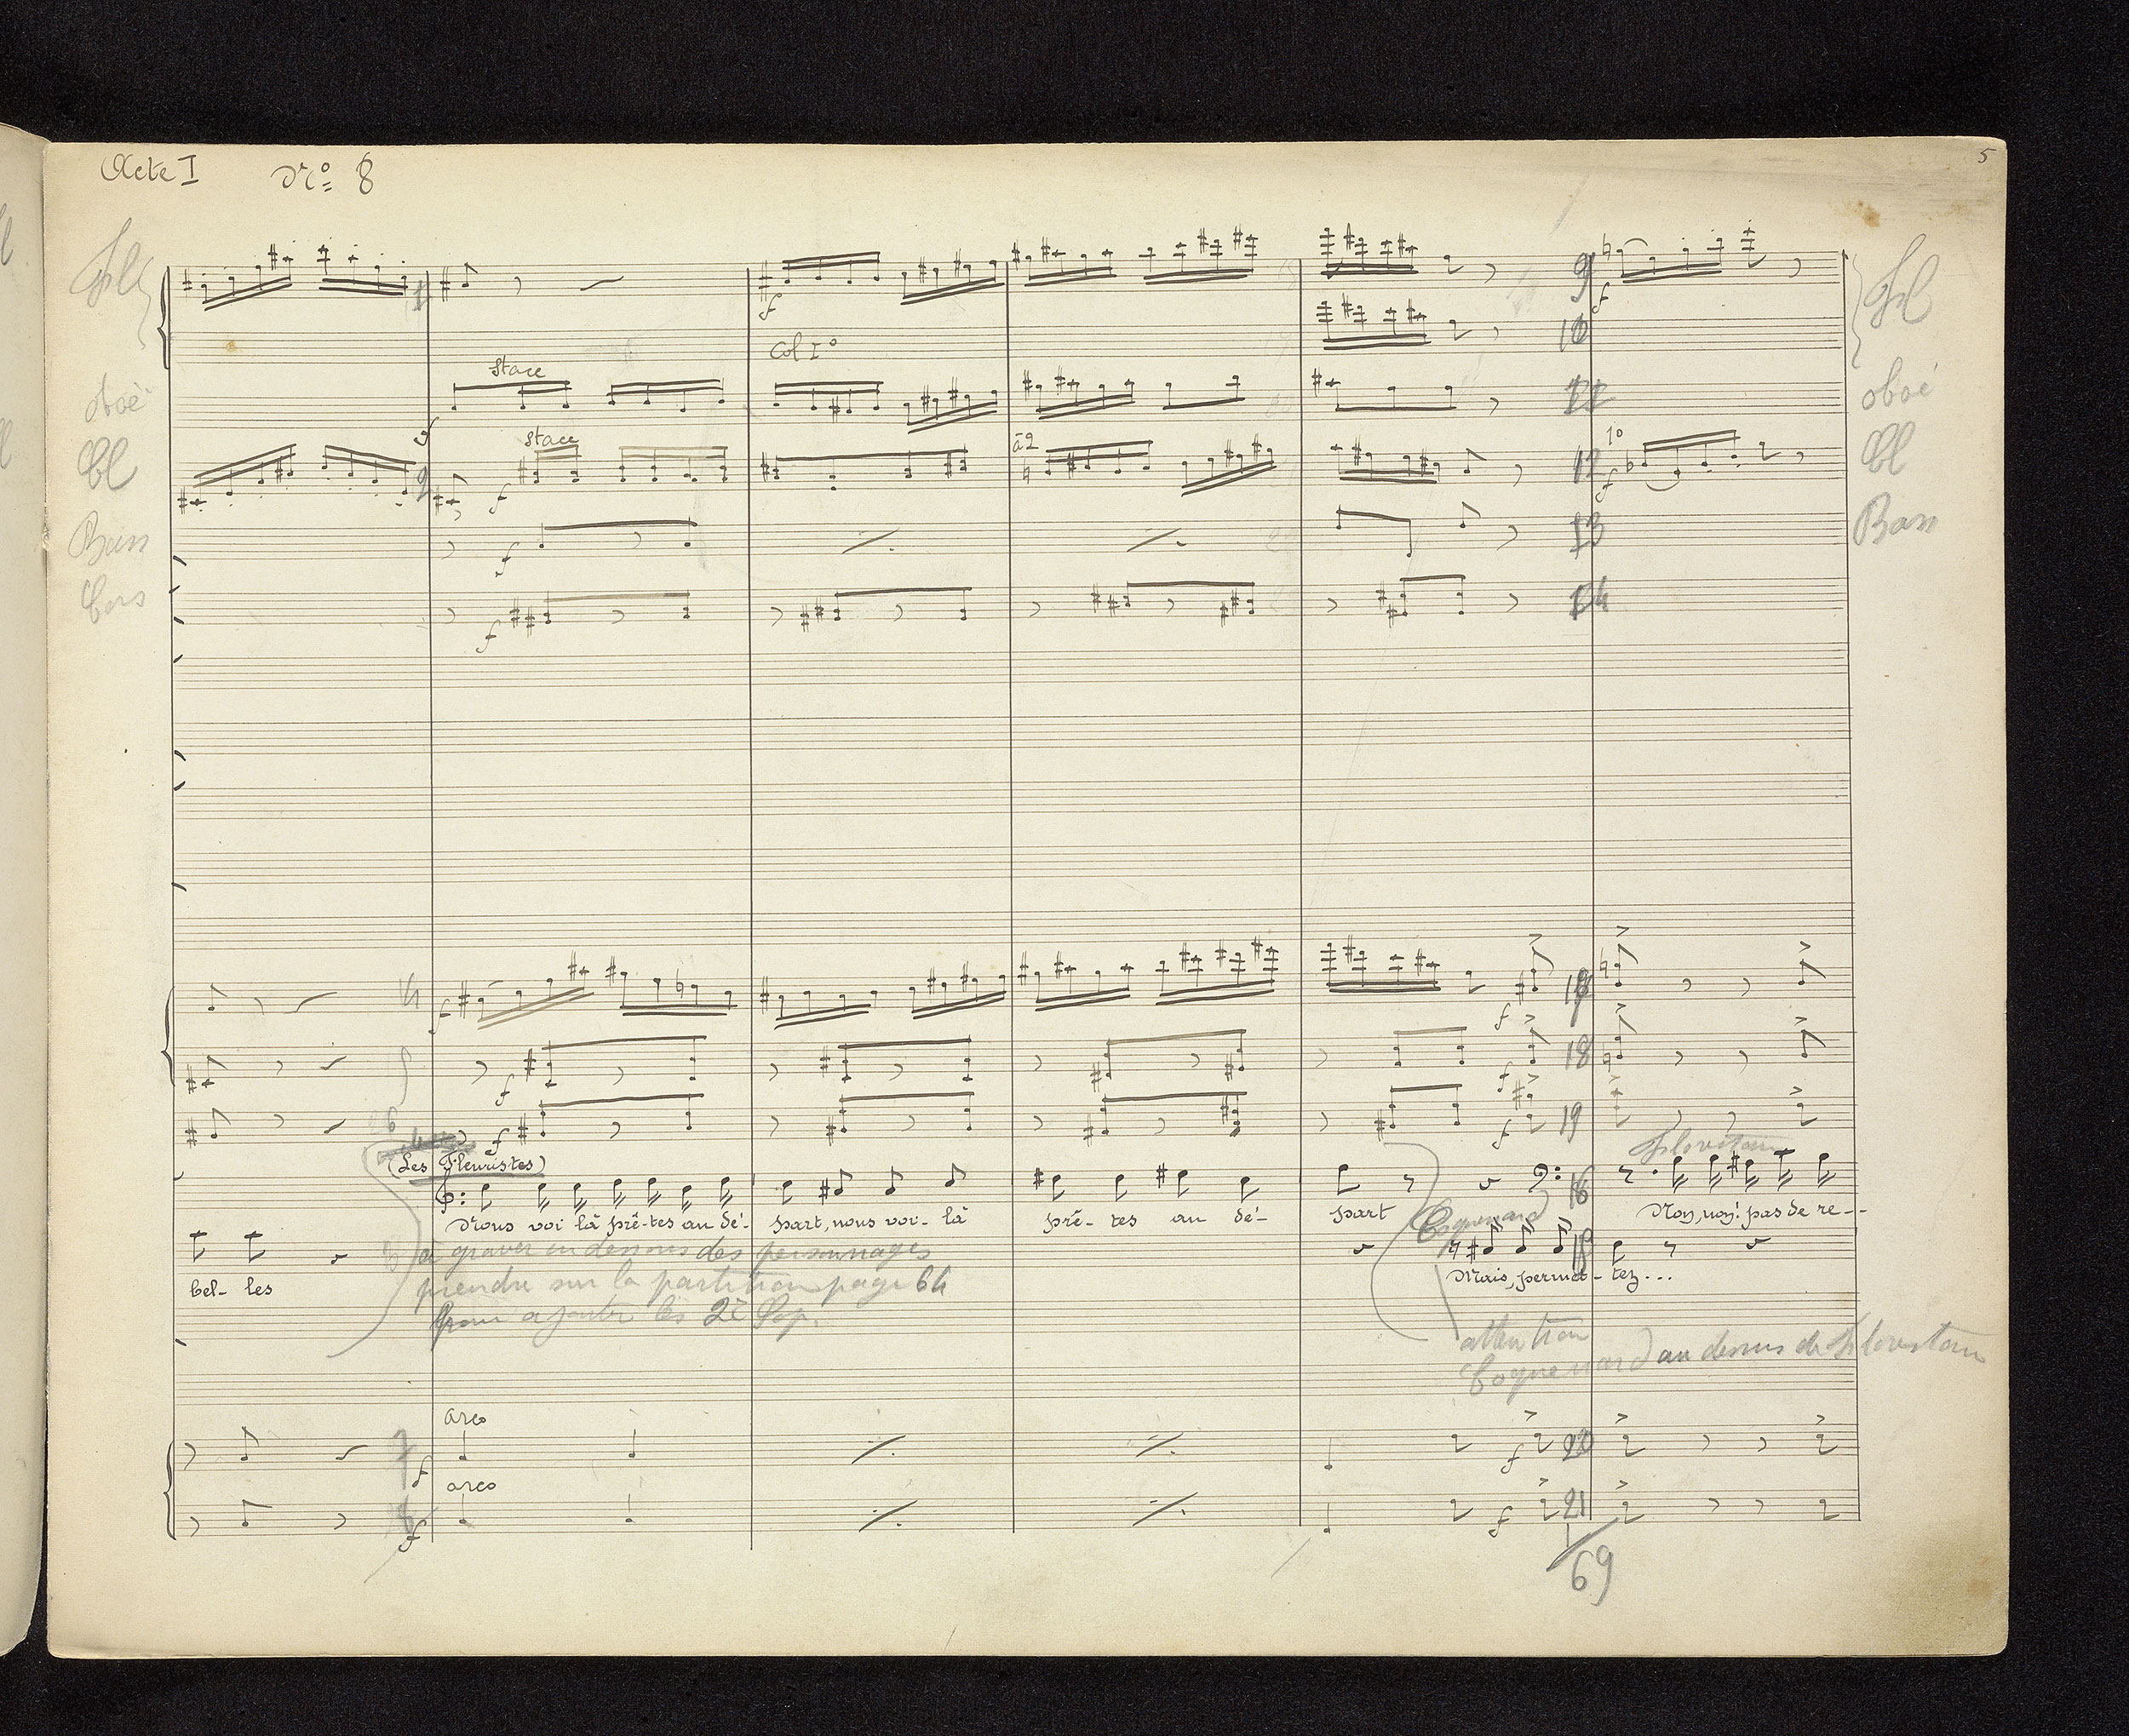 Acte I No. 8
5
Fl
Fl
9
f
f
10
Col Io
stacc
oboe
oboe
11
f
stacc
à2
1o
Cl
Cl
2
f
12
f
Bass
Bass
f
13
Cors
f
14
4
f
f
f
f
18
f
f
19
(Les Fleuristes)
Florestan
16
Nous voi là prê-tes au dé- part, nous voi-là prê- tes au dé- part
Non, non! pas de re--
Coquenard
à graver en dessous des personnages
18
bel- les
Mais, permet- tez...
prendre sur la partition page 64
pour ajouter les 2e Sop.
attention
Coquenard au dessus de Florestan
arco
7
f
f
20
arco
f
f
21
69